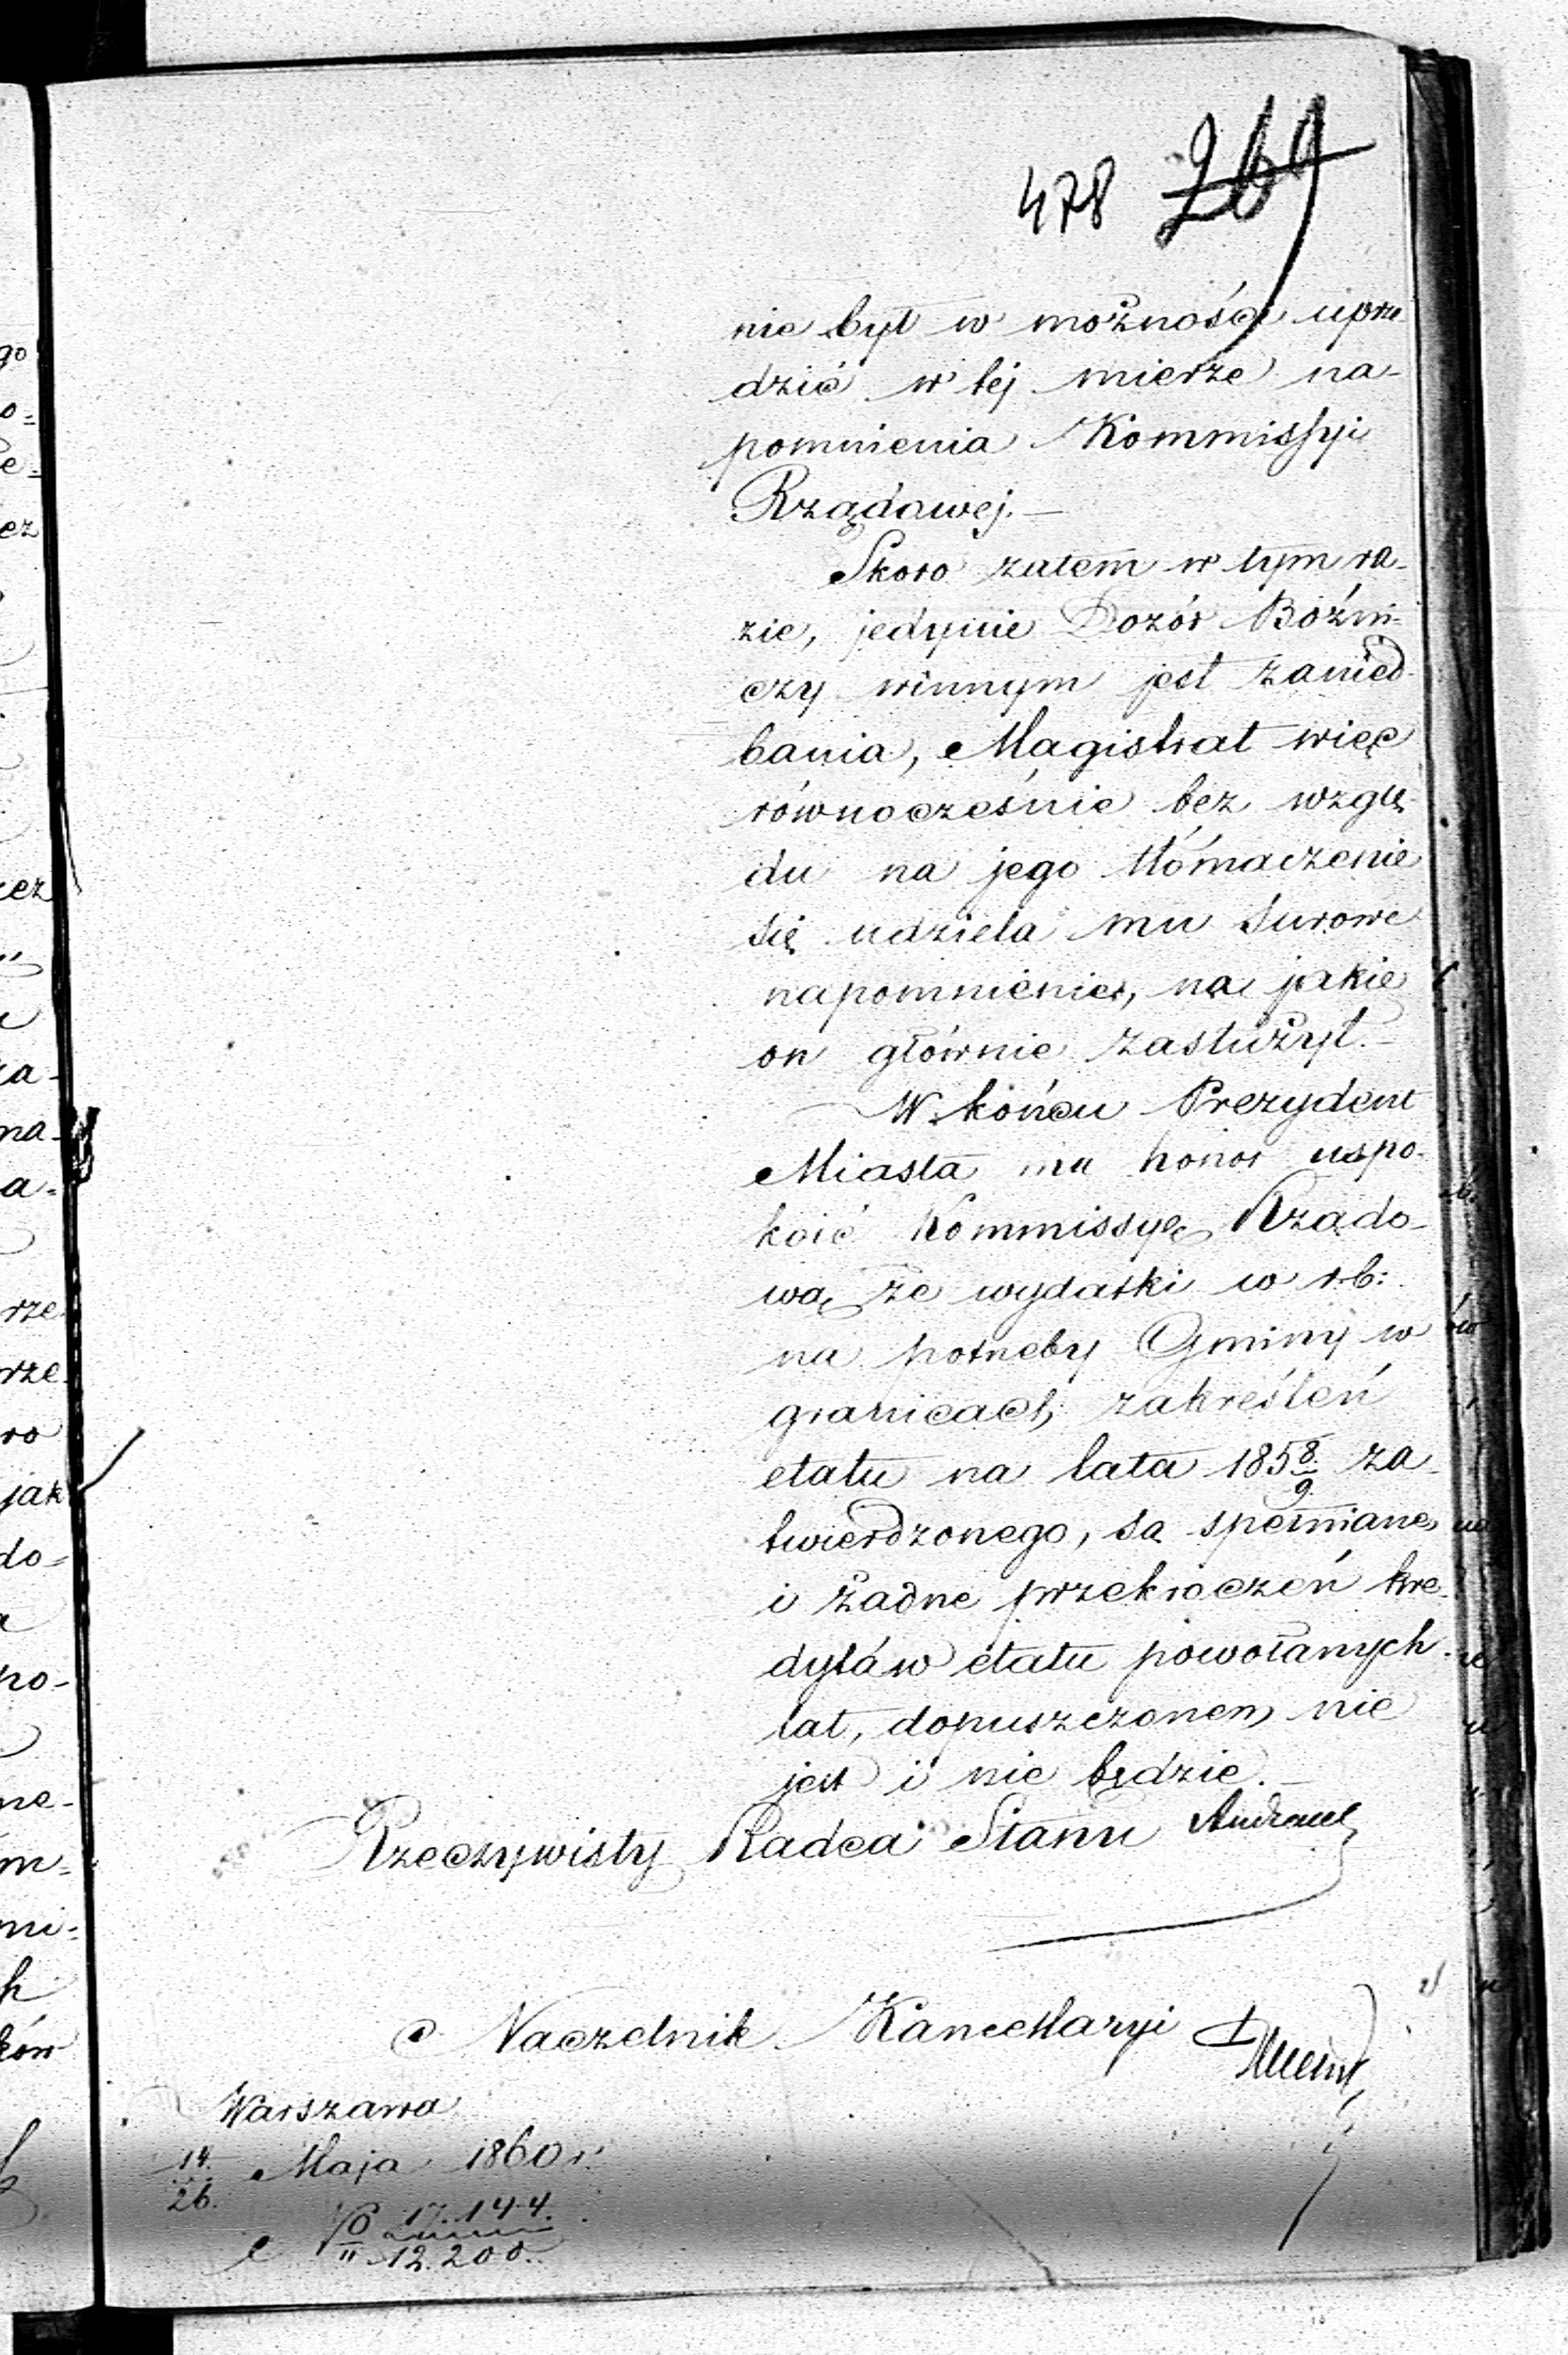 478 269
nie był w możności uprze
dzić w tej mierze na-
pomnienia Kommissyi
Rządowej. —
Skoro zatem w tym ra-
zie, jedynie Dozór Bóżni-
czy winnym jest zanied
bania, Magistrat więc
równocześnie bez wzglę-
du na jego tłómaczenie
się udziela mu surowe
napomnienie, na jakie
on głównie zasłużył. —
W końcu Prezydent
Miasta ma honor uspo-
koić Kommissyę Rządo-
wą że wydatki w r. b:
na potrzeby Gminy w
granicach zakreśleń
etatu na lata 1858/9 za-
twierdzonego, są spełniane
i żadne przekroczeń kre-
dytów etatu powołanych
lat, dopuszczonem nie
jest i nie będzie. —
Rzeczywisty Radca Stanu Andrault
Naczelnik Kancellaryi
Warszawa
14/26 Maja 1860 r.
17.144.
" 12.200.